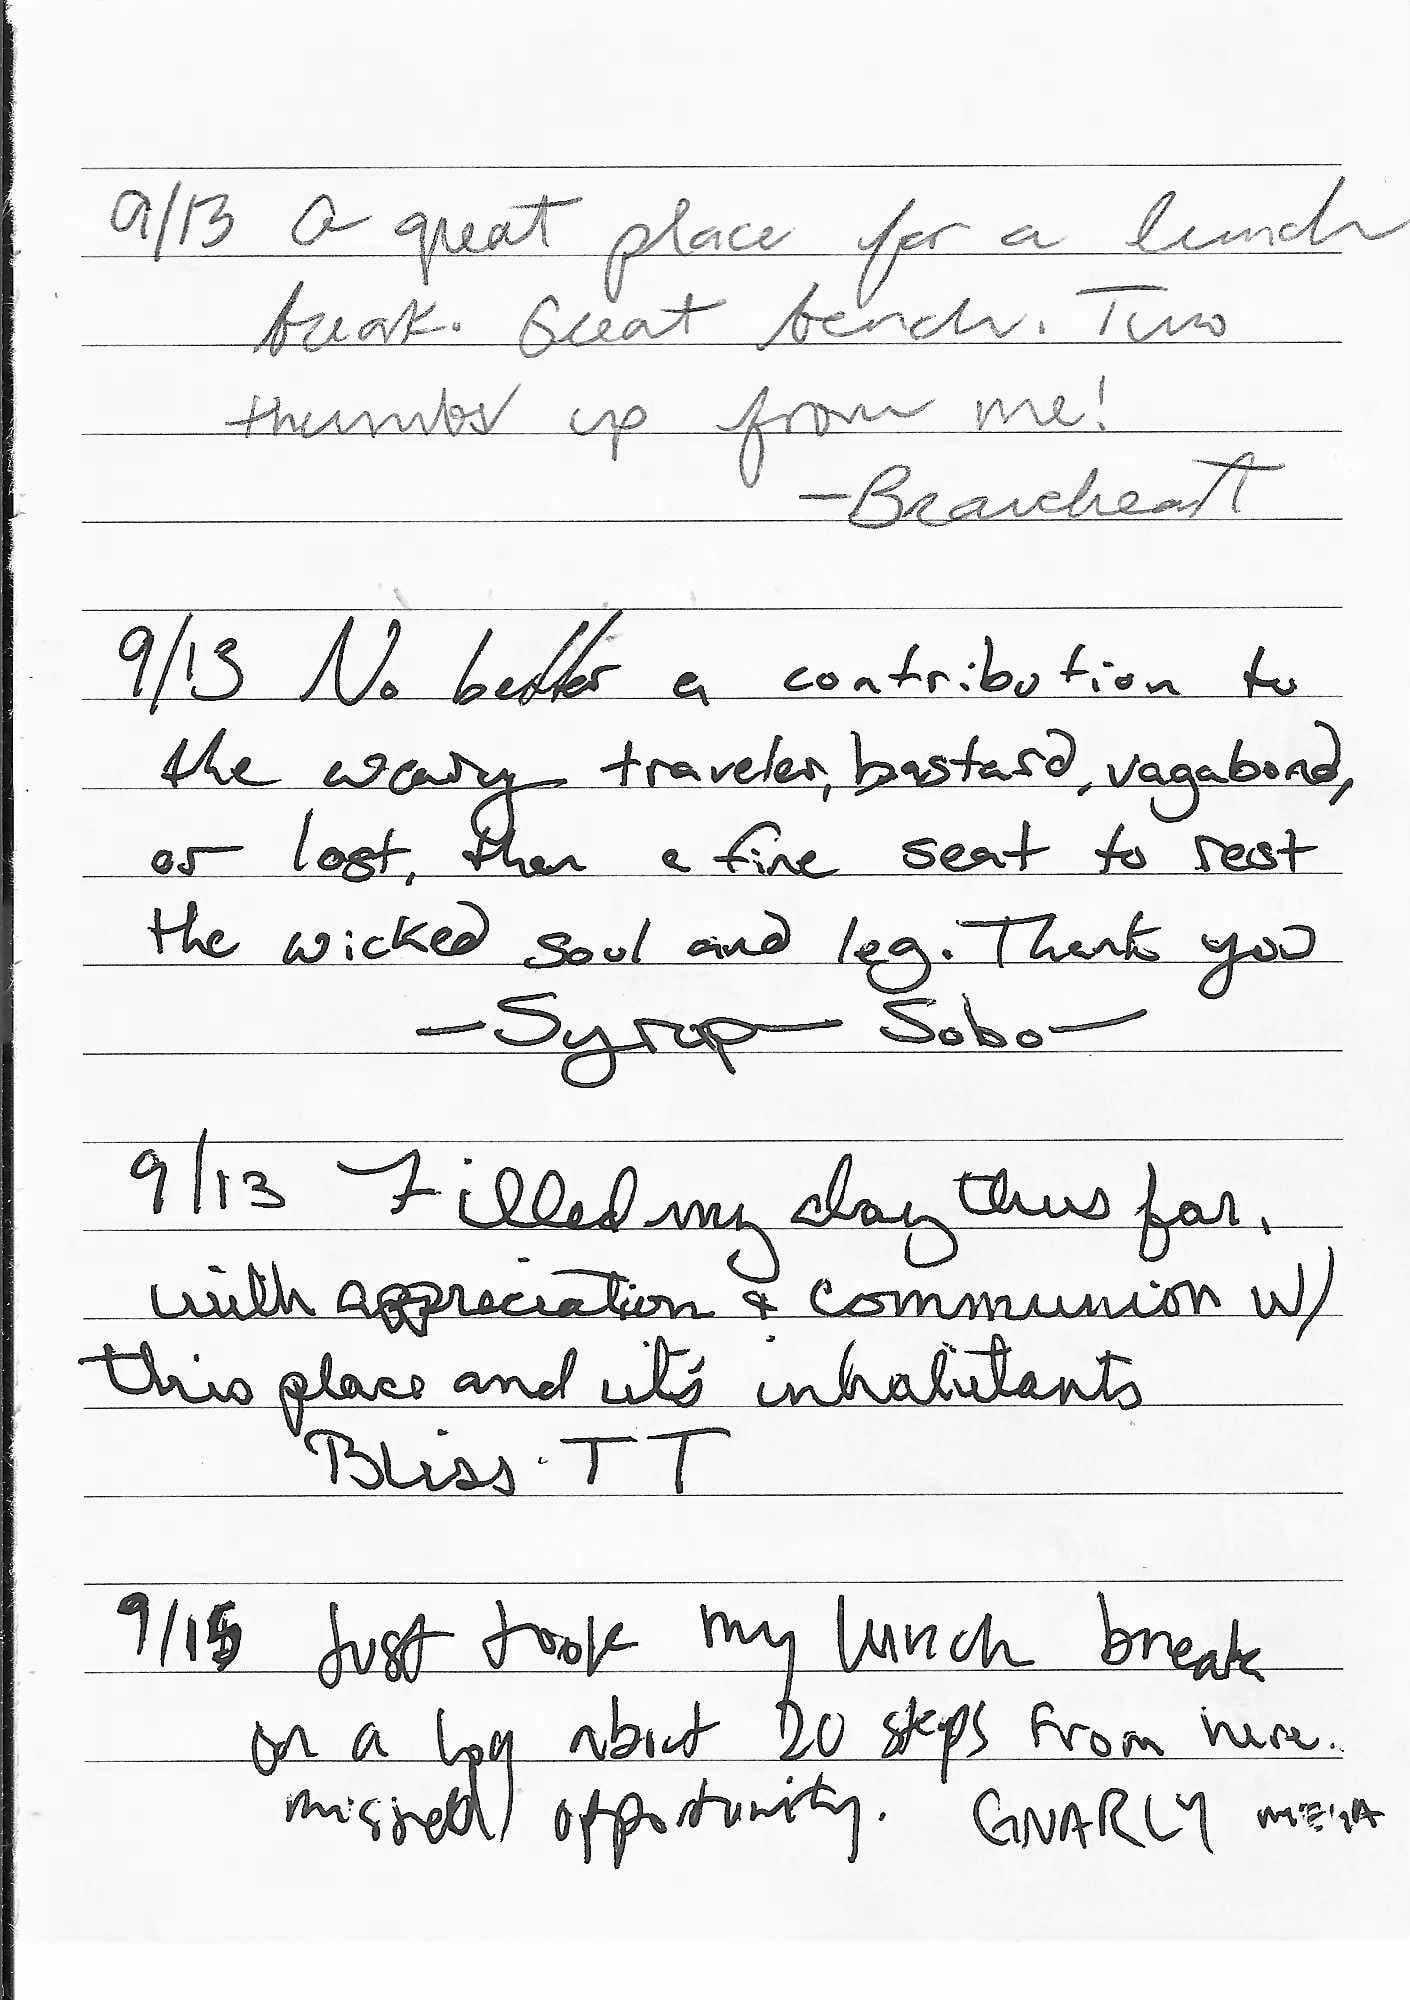 9/13 A great place for a lunch
break. Great bench. Two
thumbs up from me!
-Braveheart
9/13 No better a contribution to
the weary traveler, bastard, vagabond,
or lost, then a fine seat to rest
the wicked soul and leg. Thank you
-Syrup- Sobo-
9/13 Filled my day thus far,
with appreciation & communion w/
this place and it's inhabitants
Bliss. TT
9/15 Just took my lunch break
on a log about 20 steps from here.
missed opportunity. GNARLY